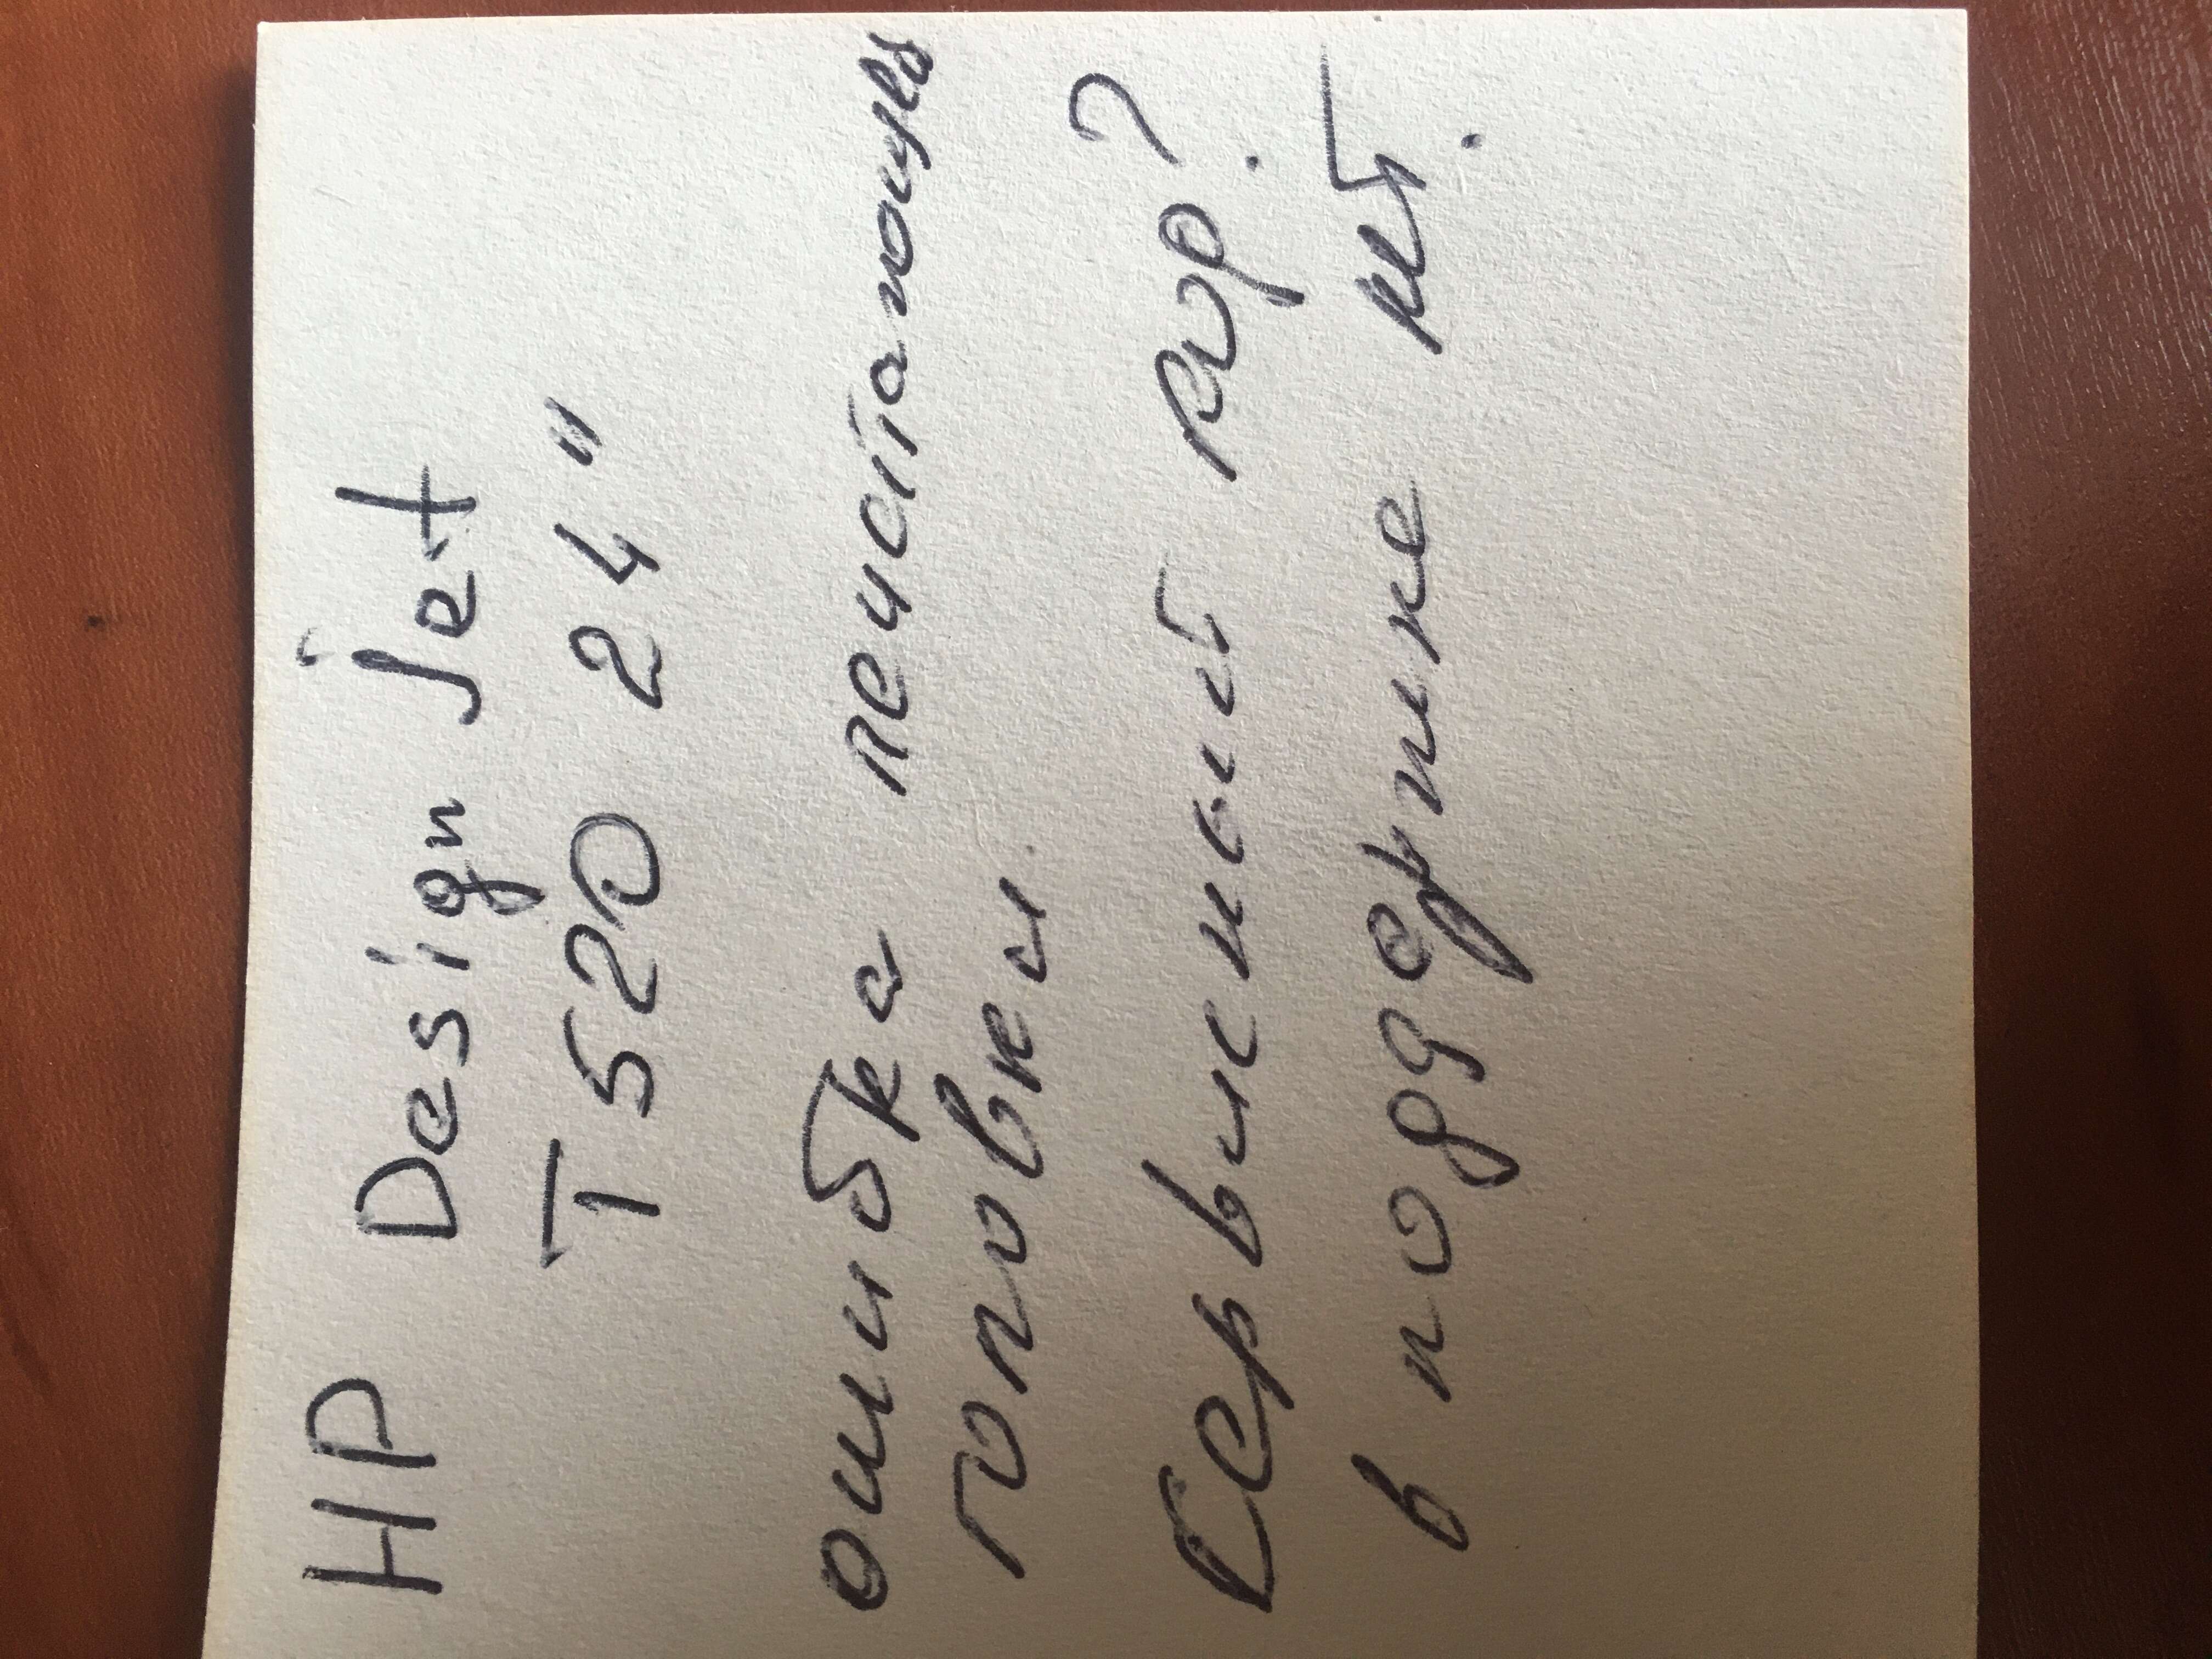 HP Design jet
T520 24"
ошибка печатающей
головки
Сервисный кор?
в поддержке HP.